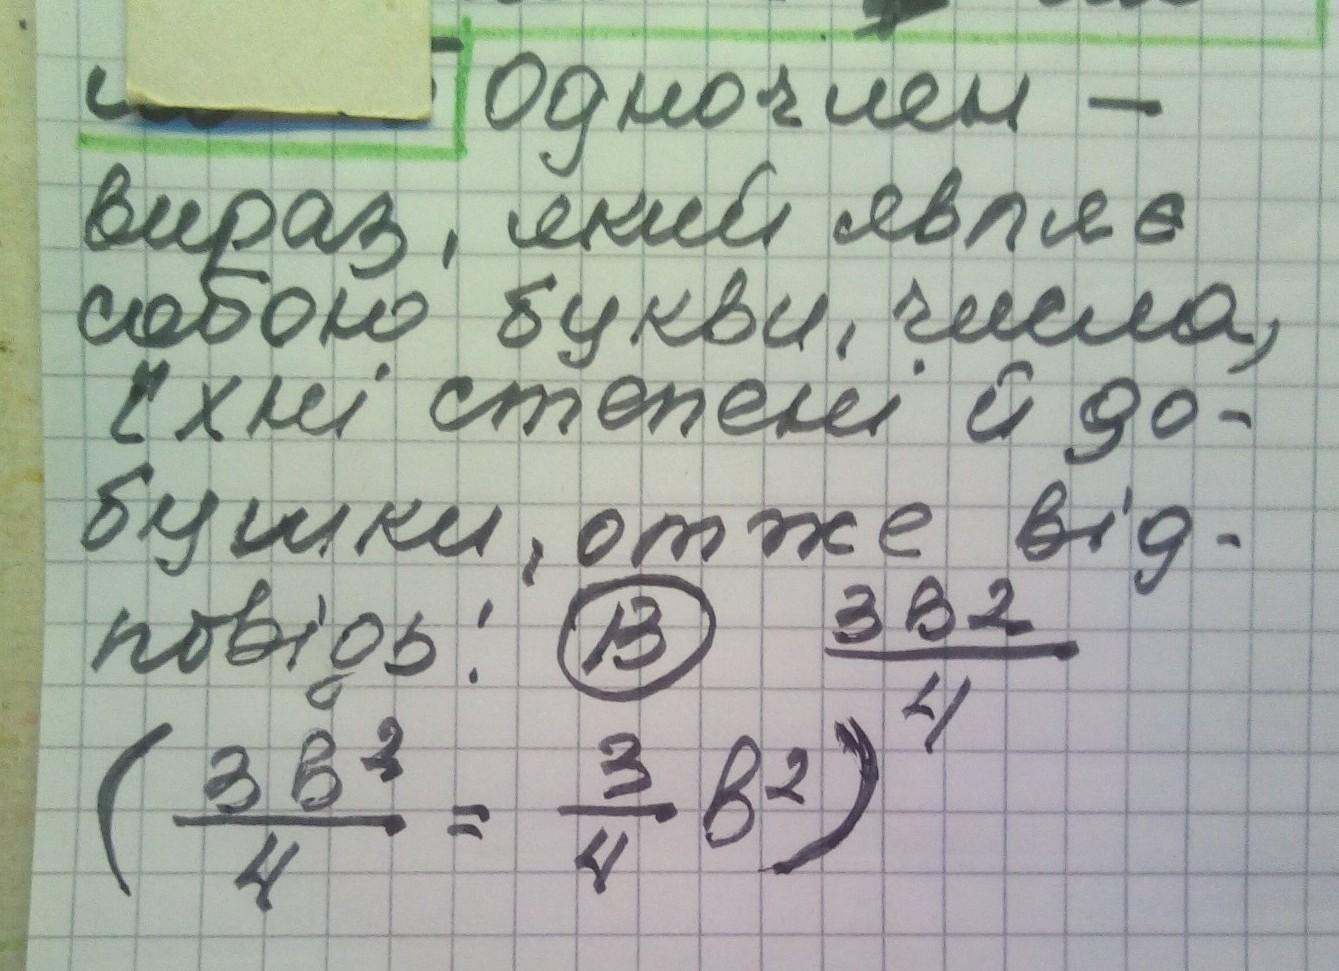 Одночлен –
вираз, який являє
собою букви, числа,
їхні степені й до-
бутки, отже від-
повідь: В 3В2/4
(3В²/4 = 3/4 В²)